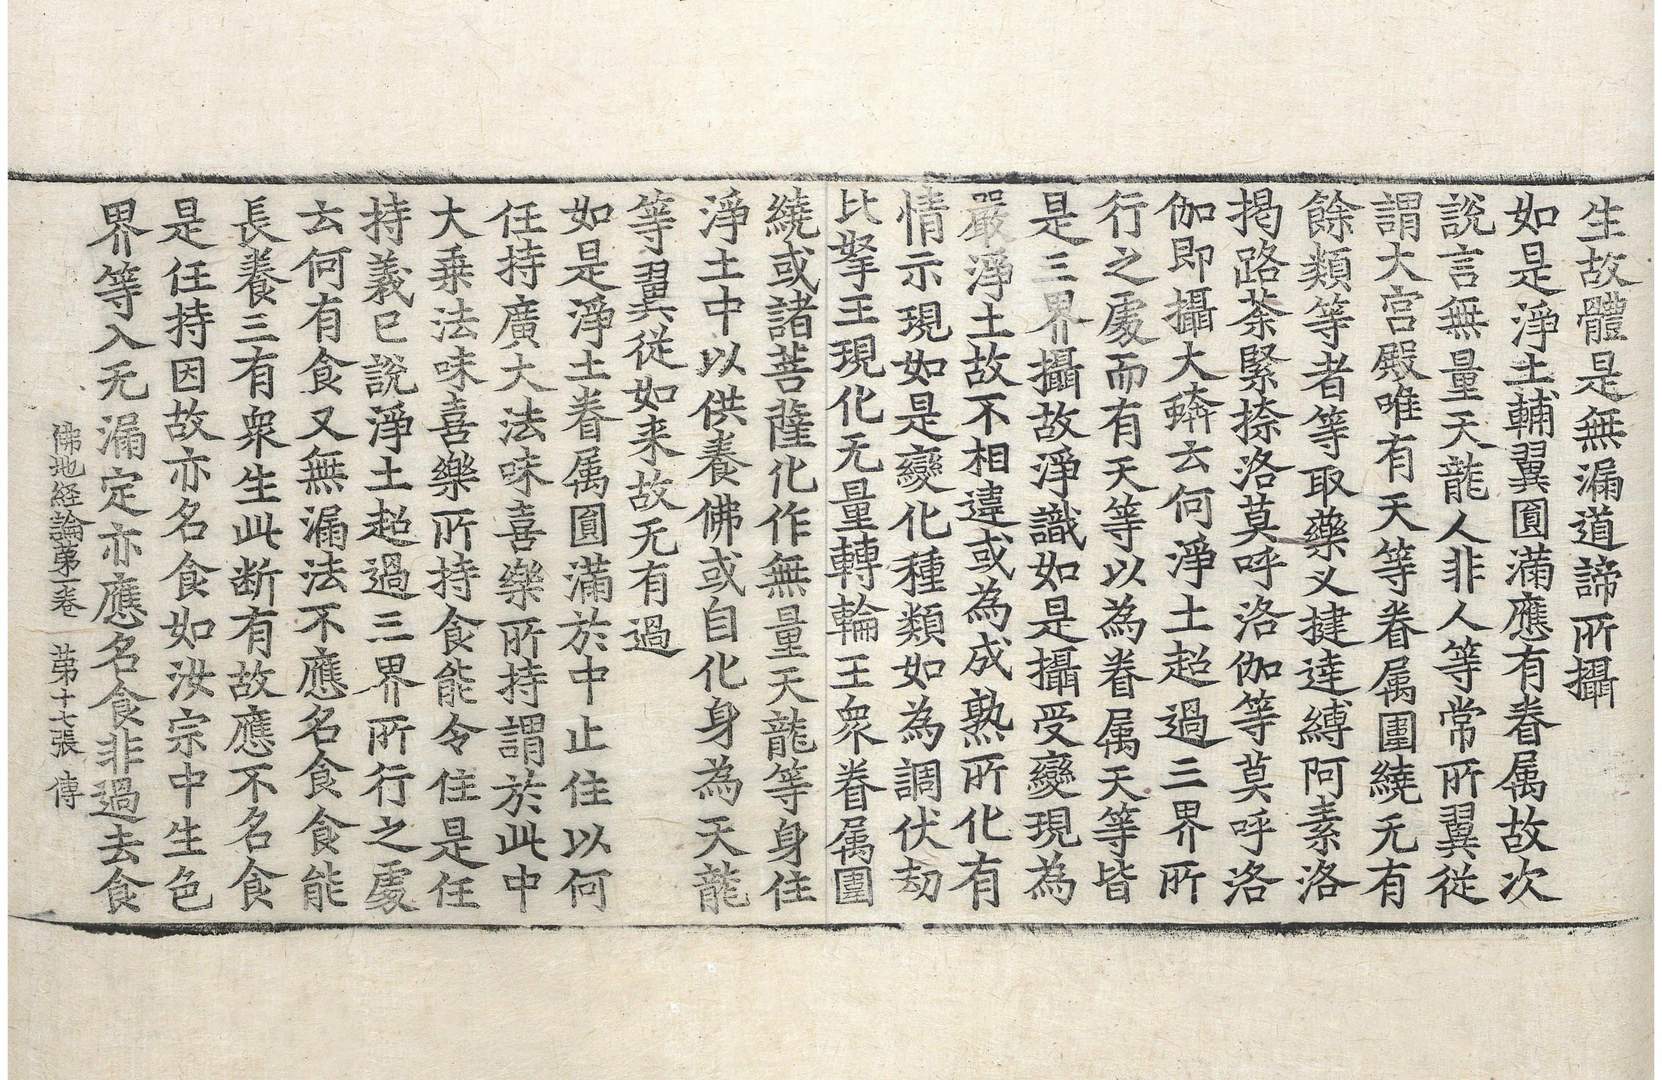 生故體是無漏道諦所攝
如是淨土輔翼圓滿應有眷属故次
說言無量天龍人非人等常所翼從
謂大宮殿唯有天等眷属圍繞无有
餘類等者等取藥叉揵達縛阿素洛
揭路荼緊捺洛莫呼洛伽等莫呼洛
伽即攝大蟒云何淨土超過三界所
行之處而有天等以為眷属天等皆
是三界攝故淨識如是攝受變現為
嚴淨土故不相違或為成熟所化有
情示現如是變化種類如為調伏劫
比拏王現化无量轉輪王眾眷属圍
繞或諸菩薩化作無量天龍等身住
淨土中以供養佛或自化身為天龍
等翼從如来故无有過
如是淨土眷属圓滿於中止住以何
任持廣大法味喜樂所持謂於此中
大乗法味喜樂所持食能令住是任
持義已說淨土超過三界所行之處
云何有食又無漏法不應名食食能
長養三有眾生此断有故應不名食
是任持因故亦名食如汝宗中生色
界等入无漏定亦應名食非過去食
佛地経論苐一卷 苐十七張 傳